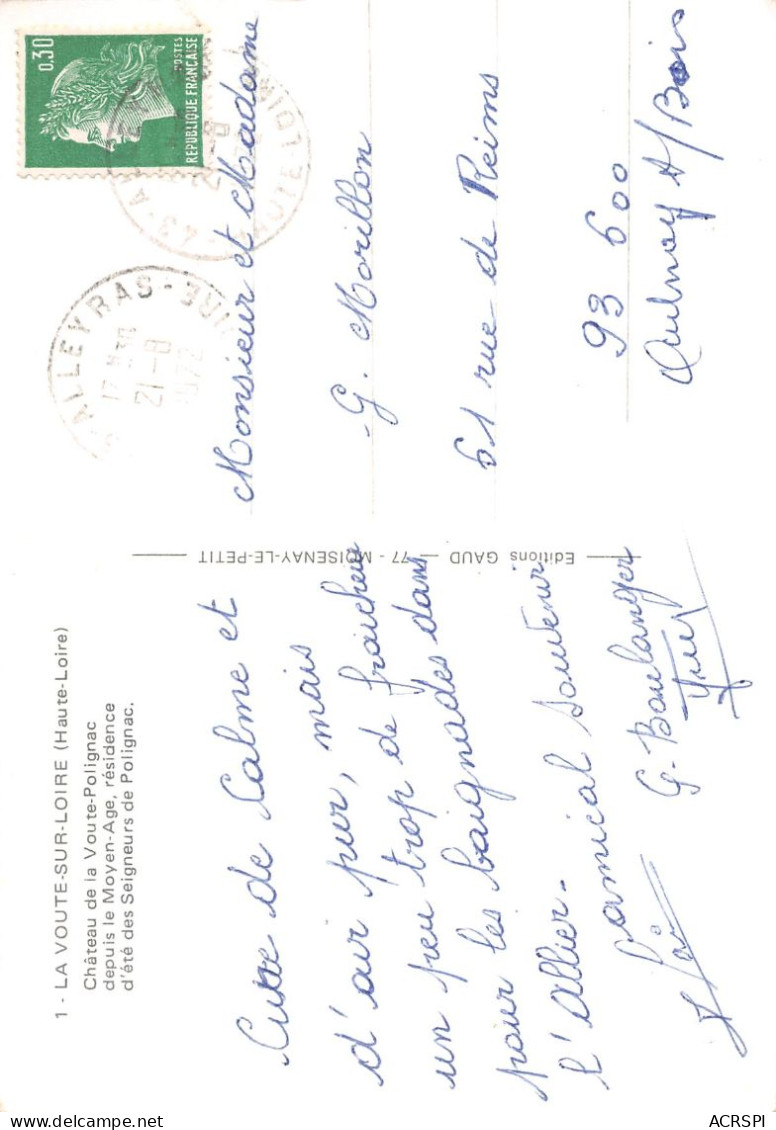 1 - LA VOUTE-SUR-LOIRE (Haute-Loire)
Château de la Voute-Polignac
depuis le Moyen-Age, résidence
d'été des Seigneurs de Polignac.
Cure de Calme et
d'air pur, mais
un peu trop de fraicheur
pour les baignades dans
l'Allier.
amical souvenir
G. Boulanger
Editions GAUD - 77 - MOISENAY-LE-PETIT
0,30
POSTES
REPUBLIQUE FRANÇAISE
HAUTE-LOIRE
ALLEYRAS
17 H
21-8
Monsieur et Madame
G. Morillon
61 rue de Reims
93 600
Aulnay s/Bois
ACRSPI